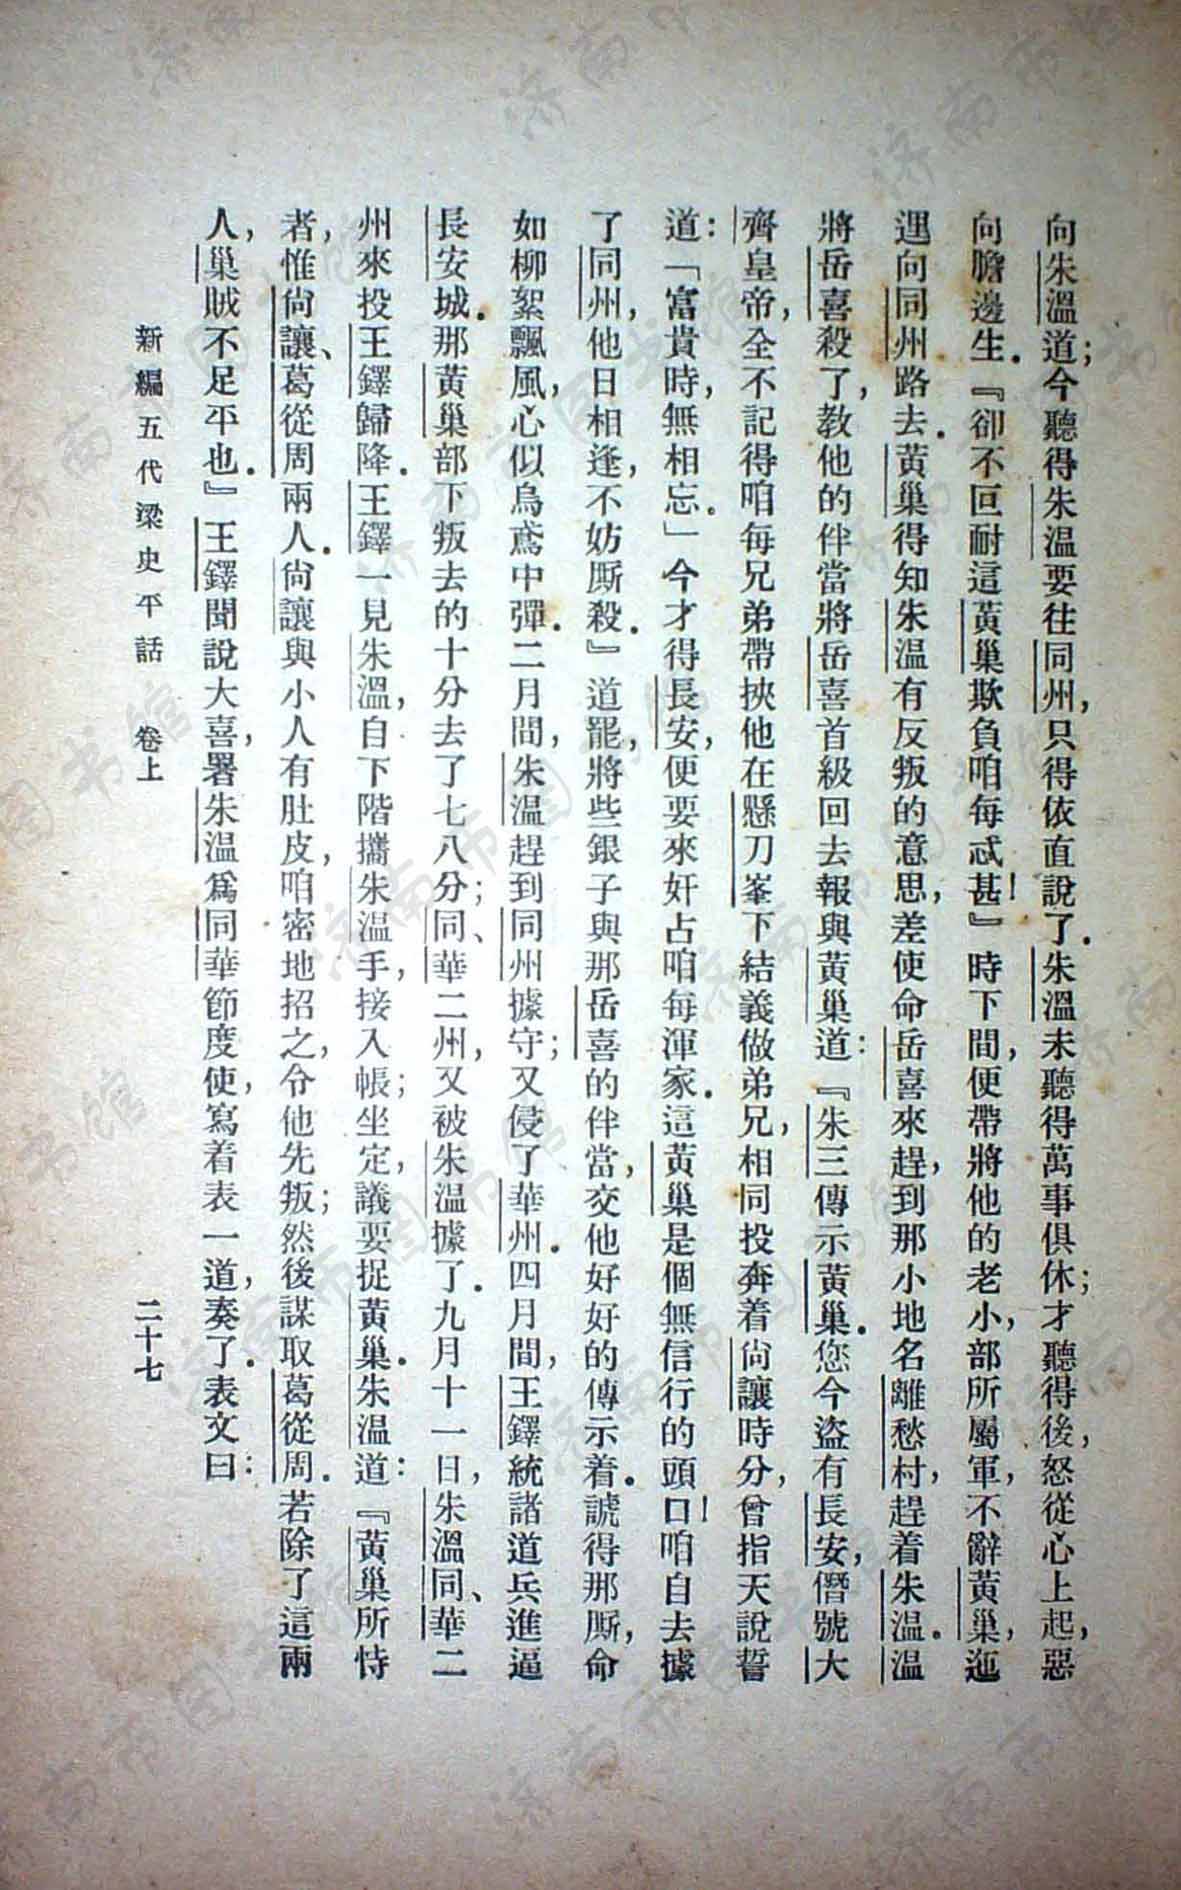 向朱溫道；今聽得朱溫要往同州，只得依直說了．朱溫未聽得萬事俱休；才聽得後，怒從心上起，惡
向膽邊生．『卻不叵耐這黃巢欺負咱每忒甚！』時下間，便帶將他的老小，部所屬軍，不辭黃巢，迤
邐向同州路去．黃巢得知朱溫有反叛的意思，差使命岳喜來趕，到那小地名離愁村，趕着朱溫．溫
將岳喜殺了，教他的伴當將岳喜首級回去報與黃巢道：『朱三傳示黃巢．您今盜有長安，僭號大
齊皇帝，全不記得咱每兄弟帶挾他在懸刀峯下結義做弟兄，相同投奔着尚讓時分，曾指天說誓
道：「富貴時，無相忘．」今才得長安，便要來奸占咱每渾家．這黃巢是個無信行的頭口！咱自去據
了同州，他日相逢，不妨厮殺．』道罷，將些銀子與那岳喜的伴當，交他好好的傳示着．諕得那厮，命
如柳絮飄風，心似烏鳶中彈．二月間，朱溫趕到同州據守；又侵了華州．四月間，王鐸統諸道兵進逼
長安城．那黃巢部下叛去的十分去了七八分；同、華二州，又被朱溫據了．九月十一日，朱溫同、華二
州來投王鐸歸降．王鐸一見朱溫，自下階攜朱溫手，接入帳；坐定，議要捉黃巢．朱溫道：『黃巢所恃
者，惟尚讓、葛從周兩人．尚讓與小人有肚皮，咱密地招之，令他先叛；然後謀取葛從周．若除了這兩
人，巢賊不足平也．』王鐸聞說大喜，署朱溫爲同華節度使，寫着表一道，奏了．表文曰：
新編五代梁史平話　卷上　二十七
济南市图书馆